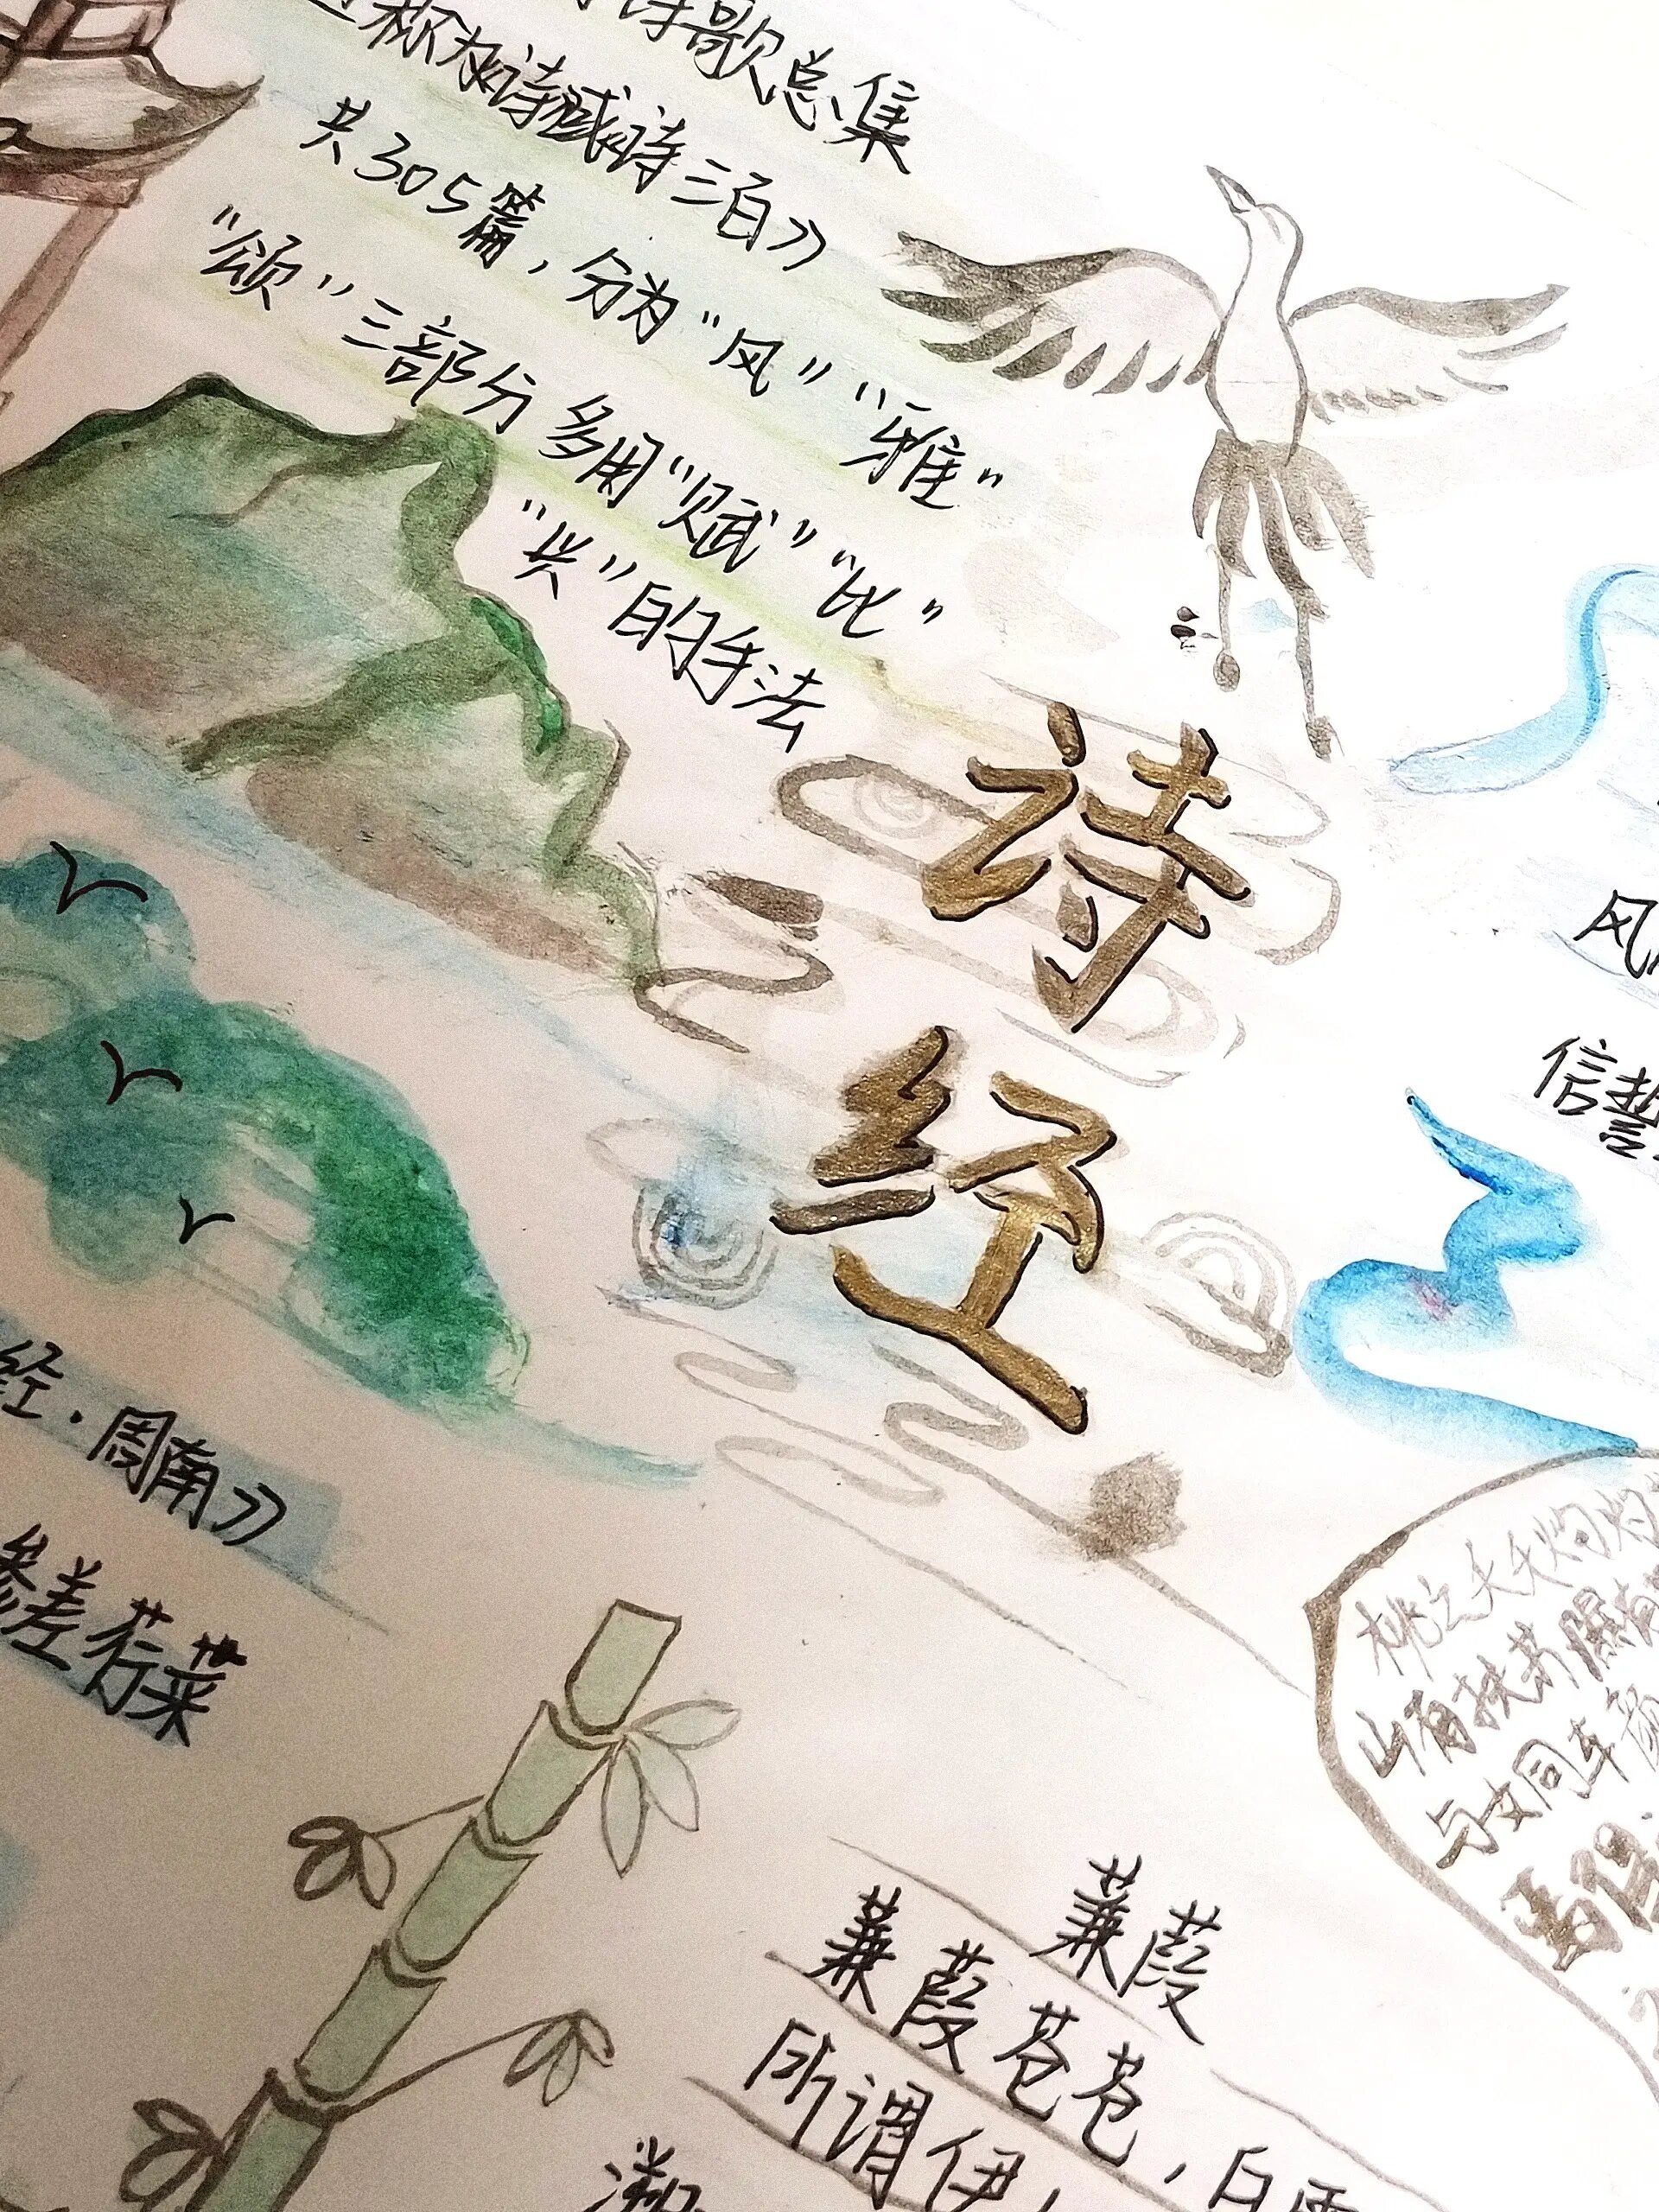 诗歌总集
称为诗或诗三百》
共305篇，分为“风”“雅”
“颂”三部分 多用“赋”“比”
“兴”的手法
诗
经
风
信誓
经·周南》
参差荇菜
桃之夭夭灼灼
山有扶苏隰有
与女同车颜
蒹葭
蒹葭苍苍，白露
所谓伊
溯